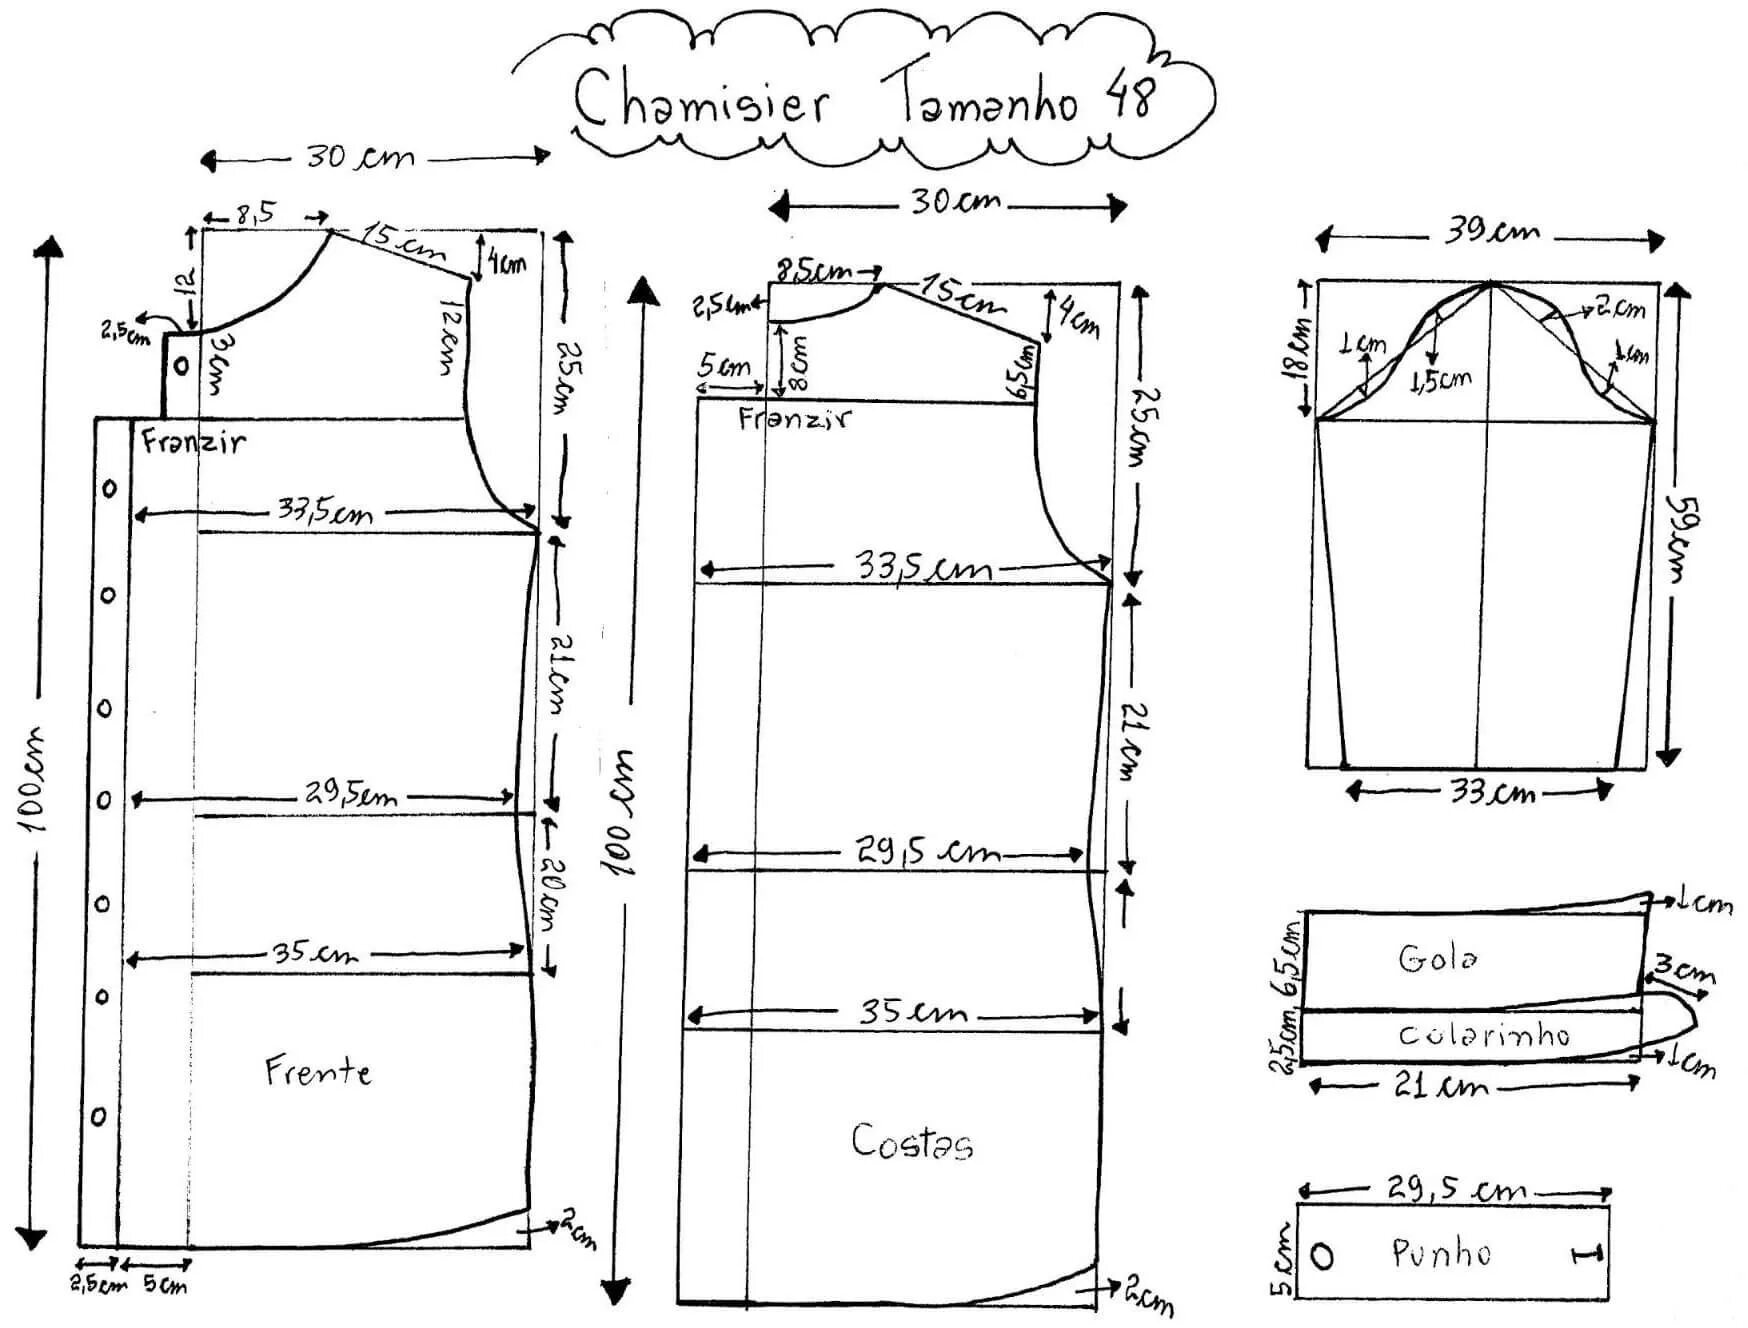 Chamisier Tamanho 48
30 cm
8,5
15 cm
4cm
12
2,5cm
3cm
12cm
25cm
Franzir
33,5cm
21cm
100cm
29,5cm
20cm
35 cm
Frente
2cm
2,5cm
5cm
30cm
8,5cm
15cm
2,5cm
4cm
8cm
5cm
6,5cm
Franzir
25cm
33,5cm
21cm
100 cm
29,5 cm
35cm
Costas
2cm
39cm
18cm
2cm
1cm
1,5cm
1cm
59cm
33cm
1cm
Gola
6,5cm
3cm
2,5cm
Colarinho
1cm
21cm
29,5 cm
5cm
Punho